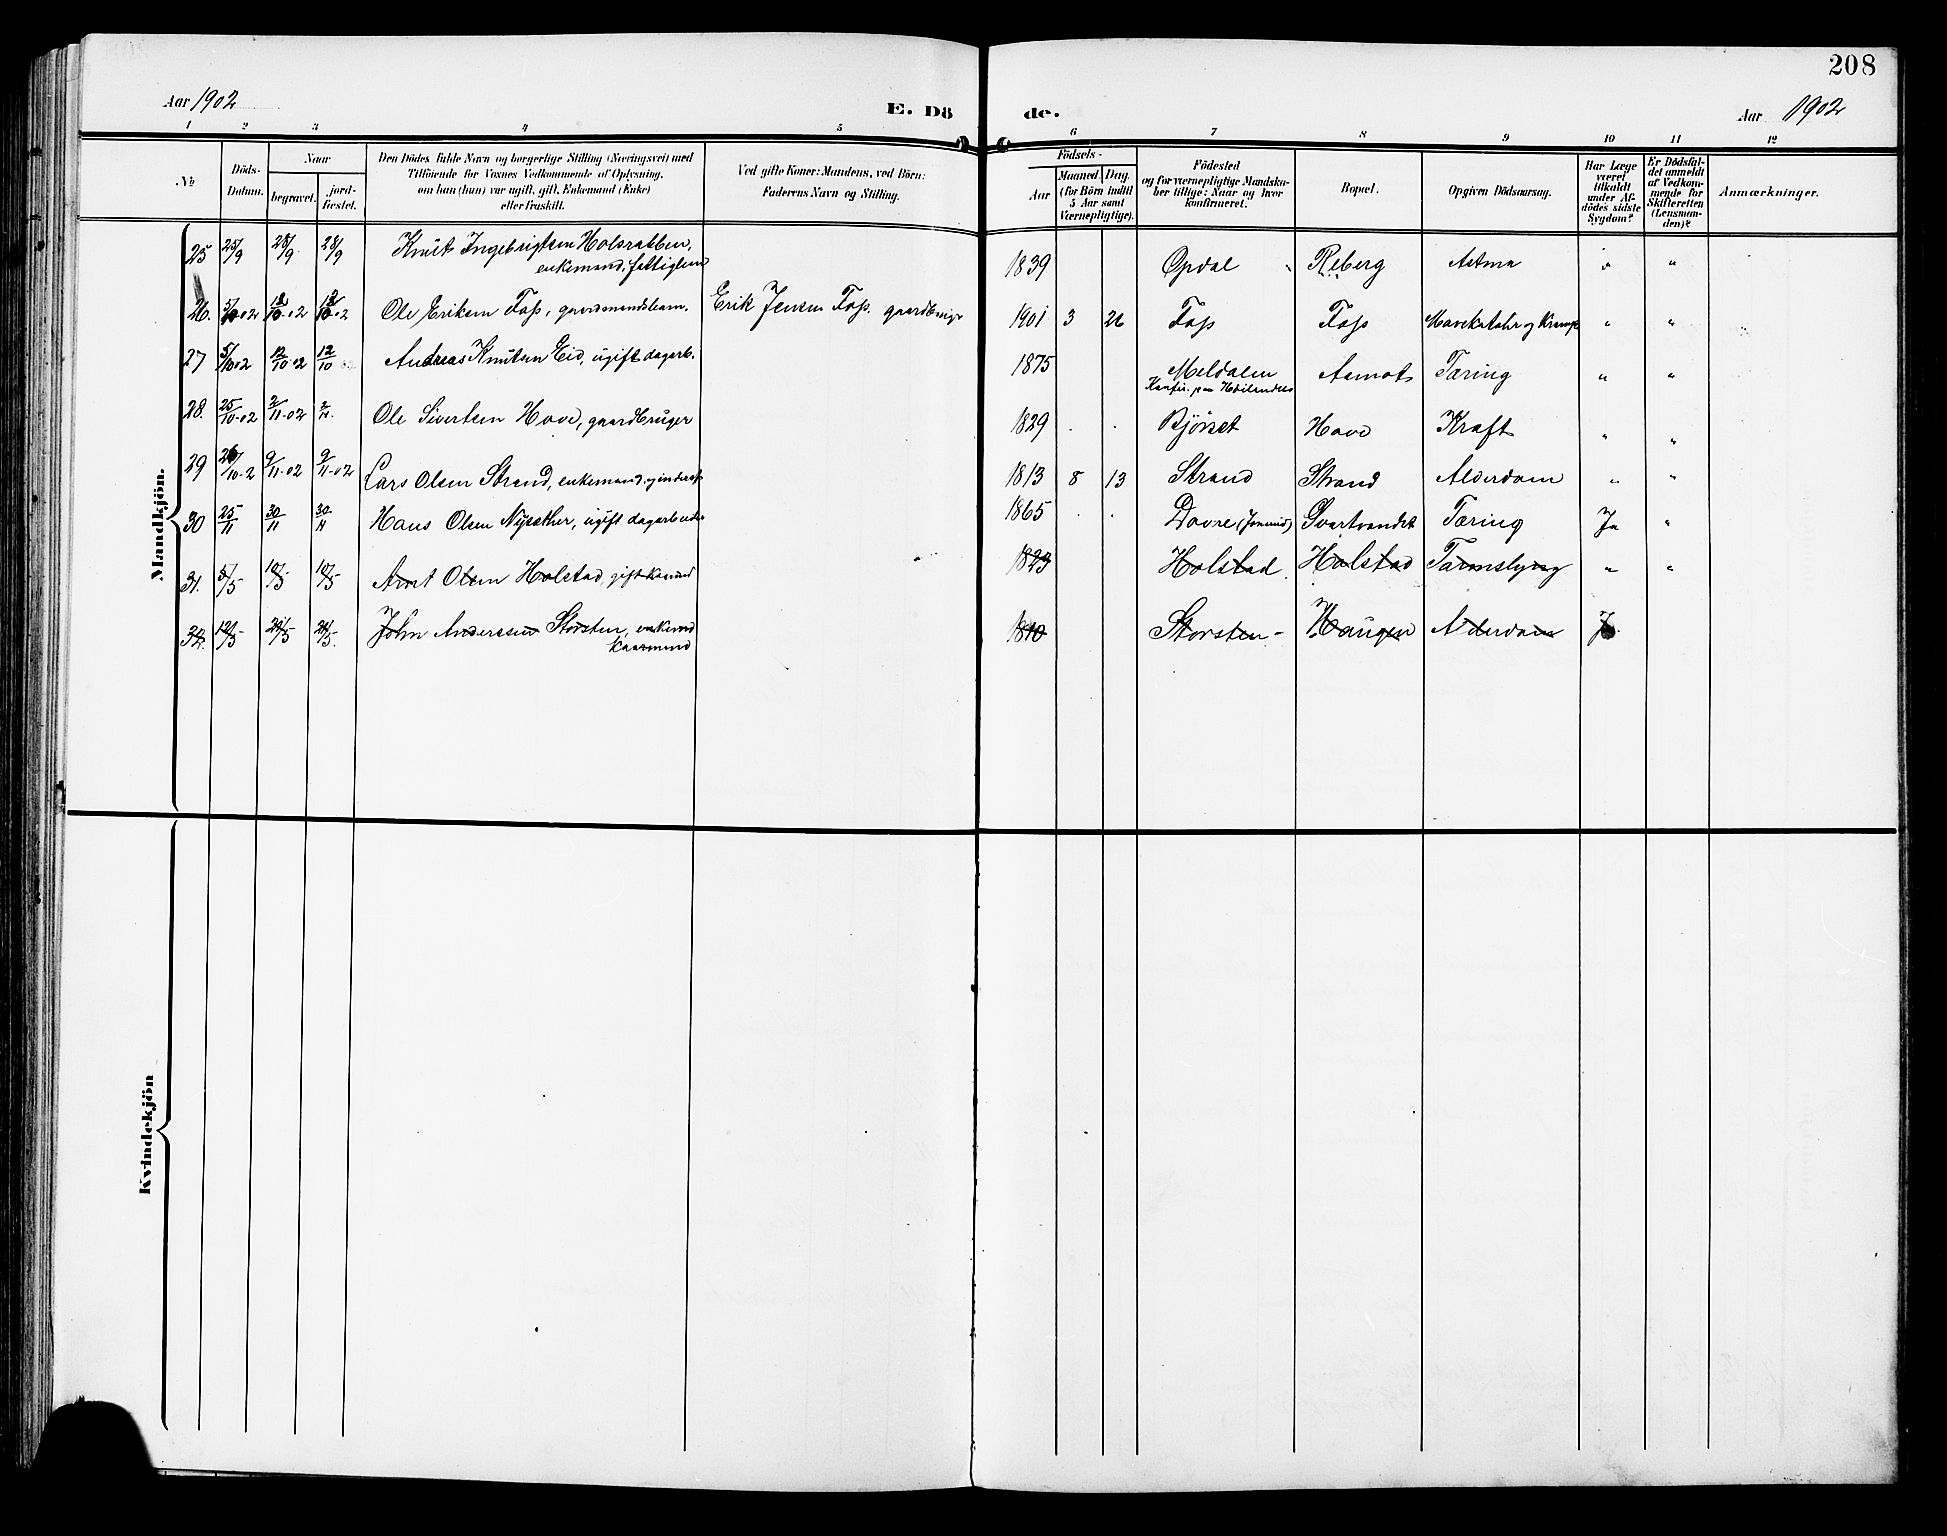 208
Aar 1902
E. Dö
de.
Aar 1902
1 2 3 4 5 6 7 8 9 10 11 12
No
Döds-
Datum.
Naar
begravet.
jord-
fæstet.
Den Dödes fulde Navn og borgerlige Stilling (Næringsvei) med
Tilföiende for Voxnes Vedkommende af Oplysning,
om han (hun) var ugift, gift, Enkemand (Enke)
eller fraskilt.
Ved gifte Koner: Mandens, ved Börn:
Faderens Navn og Stilling.
Födsels-
Aar
Maaned Dag.
(for Börn indtil
5 Aar samt
Værnepligtige).
Födested
og for værnepligtige Mandska-
ber tillige: Naar og hvor
konfirmeret.
Bopæl.
Opgiven Dödsaarsag.
Har Læge
været
tilkaldt
under Af-
dödes sidste
Sygdom?
Er Dödsfal-
det anmeldt
af Vedkom-
mende for
Skifteretten
(Lensman-
den)?
Anmærkninger.
Mandkjön.
25 25/9 28/9 28/9 Knut Ingebrigtsen
enkemand, 1839 Opdal Reberg Astma " "
26. 5/10 02 Ole Eriksen Foss, gaardmandsbarn. Erik Jensen Foss. gaardbruger 1901 3 26 Foss Foss Mavekatahr og Krampe " "
27 5/10 02 12/10 02 12/10 Andreas Knutsen Eid, ugift dagarb. 1875 Meldalen Aamot Tæring " "
Konfir. paa Höilandet
28. 25/10 02 2/11 02 2/11. Ole Sivertsen Hove, gaardbruger 1829 . . Bjørset Hove Kræft " "
29 26/10 2 9/11 02 9/11 02 Lars Olsen Strand, enkemand, 1813 8 13 Strand Strand Alderdom " "
30 25/11 30/11 30/11 Hans Olsen Nysæther, ugift dagarbeider 1865 . . Dovre Svartvandet Tæring Ja "
31. 5/5 10/5 10/5 Arnt Olsen Holstad, gift kaarmd 1823 Holstad Holstad " "
32. 12/5 24/5 24/5. John Anderssen Storsten, enkemd 1810 Storsten - Haugen Alderdom
Kaarmand
Kvindekjön